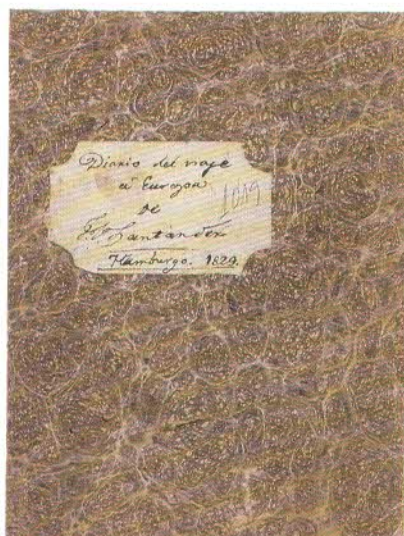 Diario del viaje
á Europa
de
F. P. Santander
Hamburgo. 1829.